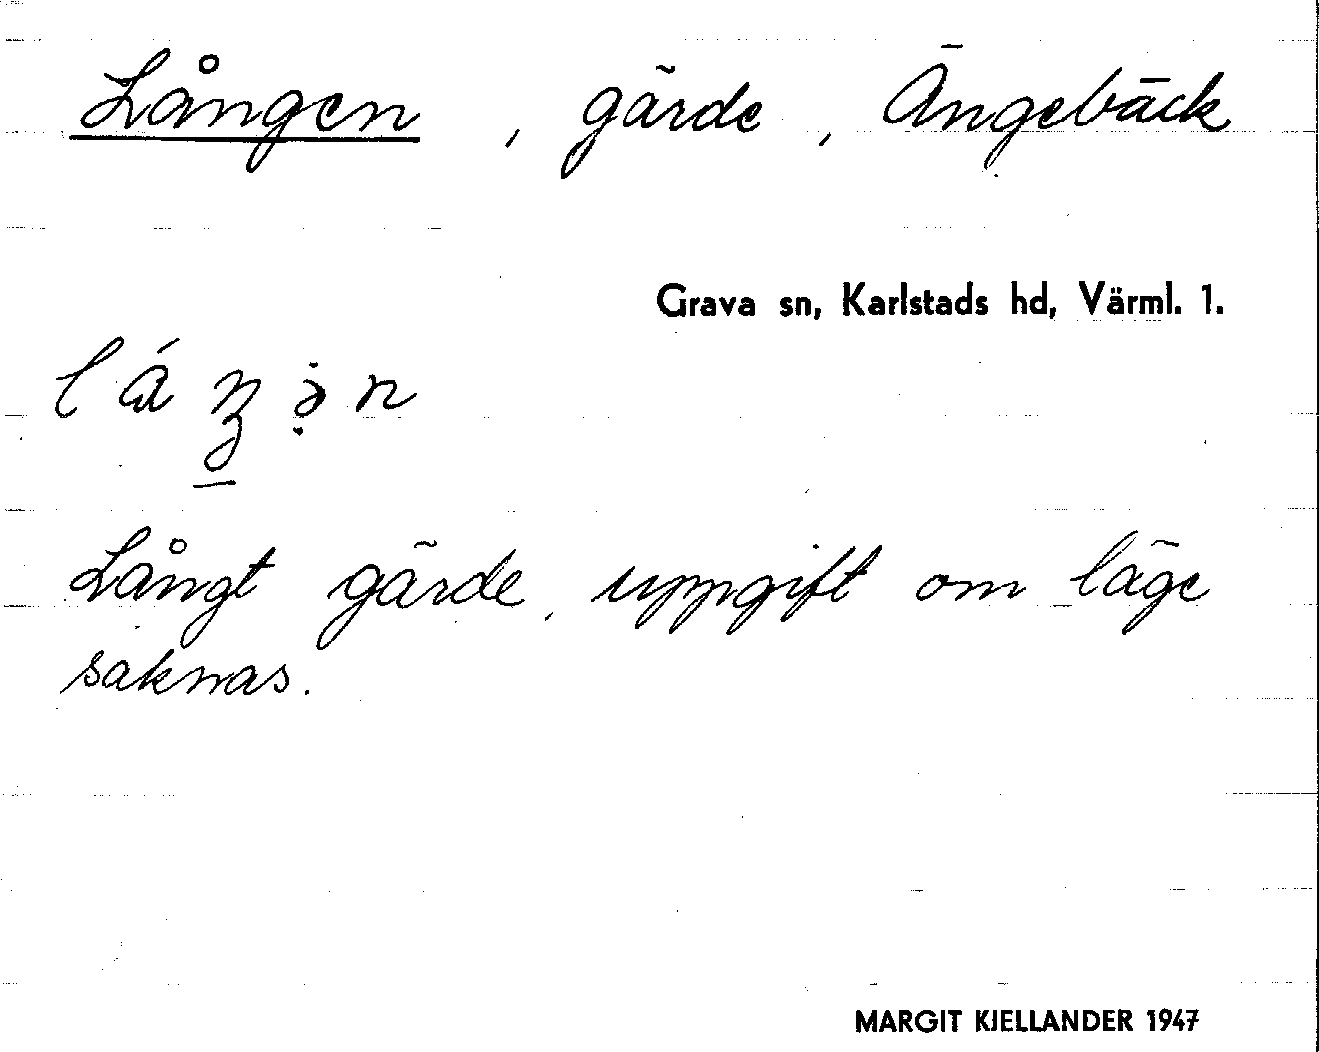 Lången, gärde, Ängebäck
Grava sn, Karlstads hd, Värml. 1.
Långt gärde, uppgift om läge
saknas.
MARGIT KJELLANDER 1947